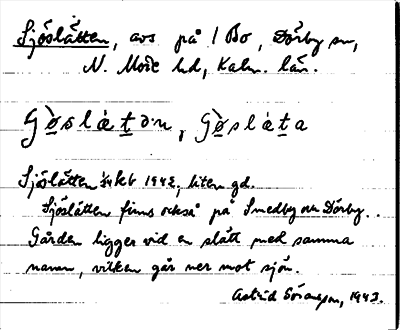 Sjöslätten, avs på 1 Bo, Dörby sn,
N. Möre hd, Kalm. län.
Gøslætən, Gøslæta
Sjöslätten 1/4 kb 1942, liten gd.
Sjöslätten finns också på Smedby om Dörby.
Gården ligger vid en slätt med samma
namn, vilken går ner mot sjön.
Astrid Göransson, 1942.